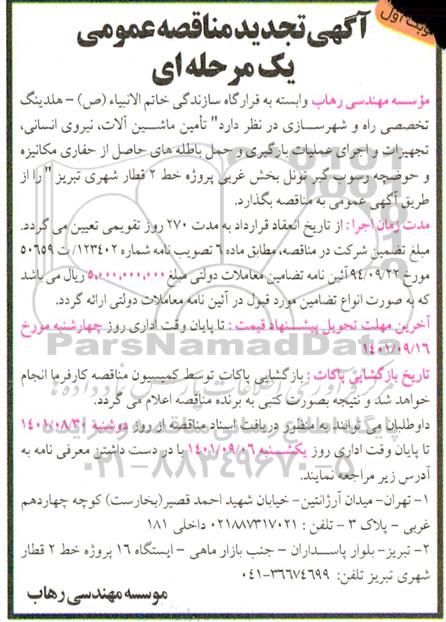 نوبت اول
آگهی تجدید مناقصه عمومی
یک مرحله ای
مؤسسه مهندسی رهاب وابسته به قرارگاه سازندگی خاتم الانبیاء (ص) – هلدینگ
تخصصی راه و شهرسازی در نظر دارد" تأمین ماشین آلات، نیروی انسانی،
تجهیزات و اجرای عملیات بارگیری و حمل باطله های حاصل از حفاری مکانیزه
و حوضچه رسوب گیر تونل بخش غربی پروژه خط ۲ قطار شهری تبریز " را از
طریق آگهی عمومی به مناقصه بگذارد.
مدت زمان اجرا : از تاریخ انعقاد قرارداد به مدت ۲۷۰ روز تقویمی تعیین می گردد.
مبلغ تضمین شرکت در مناقصه، مطابق ماده ۶ تصویب نامه شماره ۱۲۳۴۰۲/ ت ۵۰۶۵۹
مورخ ۹۴/۰۹/۲۲ آئین نامه تضامین معاملات دولتی مبلغ ۵,۰۰۰,۰۰۰,۰۰۰ ریال می باشد
که به صورت انواع تضامین مورد قبول در آئین نامه معاملات دولتی ارائه گردد.
آخرین مهلت تحویل پیشنهاد قیمت : تا پایان وقت اداری روز چهارشنبه مورخ
۱۴۰۱/۰۹/۱۶
تاریخ بازگشایی پاکات : بازگشایی پاکات توسط کمیسیون مناقصه کارفرما انجام
خواهد شد و نتیجه بصورت کتبی به برنده مناقصه اعلام می گردد.
داوطلبان می توانند به منظور دریافت اسناد مناقصه از روز دوشنبه ۱۴۰۱/۰۸/۳۰
تا پایان وقت اداری روز یکشنبه ۱۴۰۱/۰۹/۰۶ با در دست داشتن معرفی نامه به
آدرس زیر مراجعه نمایند.
۱- تهران- میدان آرژانتین- خیابان شهید احمد قصیر(بخارست) کوچه چهاردهم
غربی – پلاک ۳ – تلفن : ۰۲۱۸۸۷۳۱۷۰۲۱ داخلی ۱۸۱
۲- تبریز- بلوار پاسداران – جنب بازار ماهی – ایستگاه ۱۶ پروژه خط ۲ قطار
شهری تبریز تلفن: ۳۶۶۷۴۶۹۹-۰۴۱
موسسه مهندسی رهاب
ParsNamadData
۰۲۱-۸۸۳۴۹۶۷۰-۵